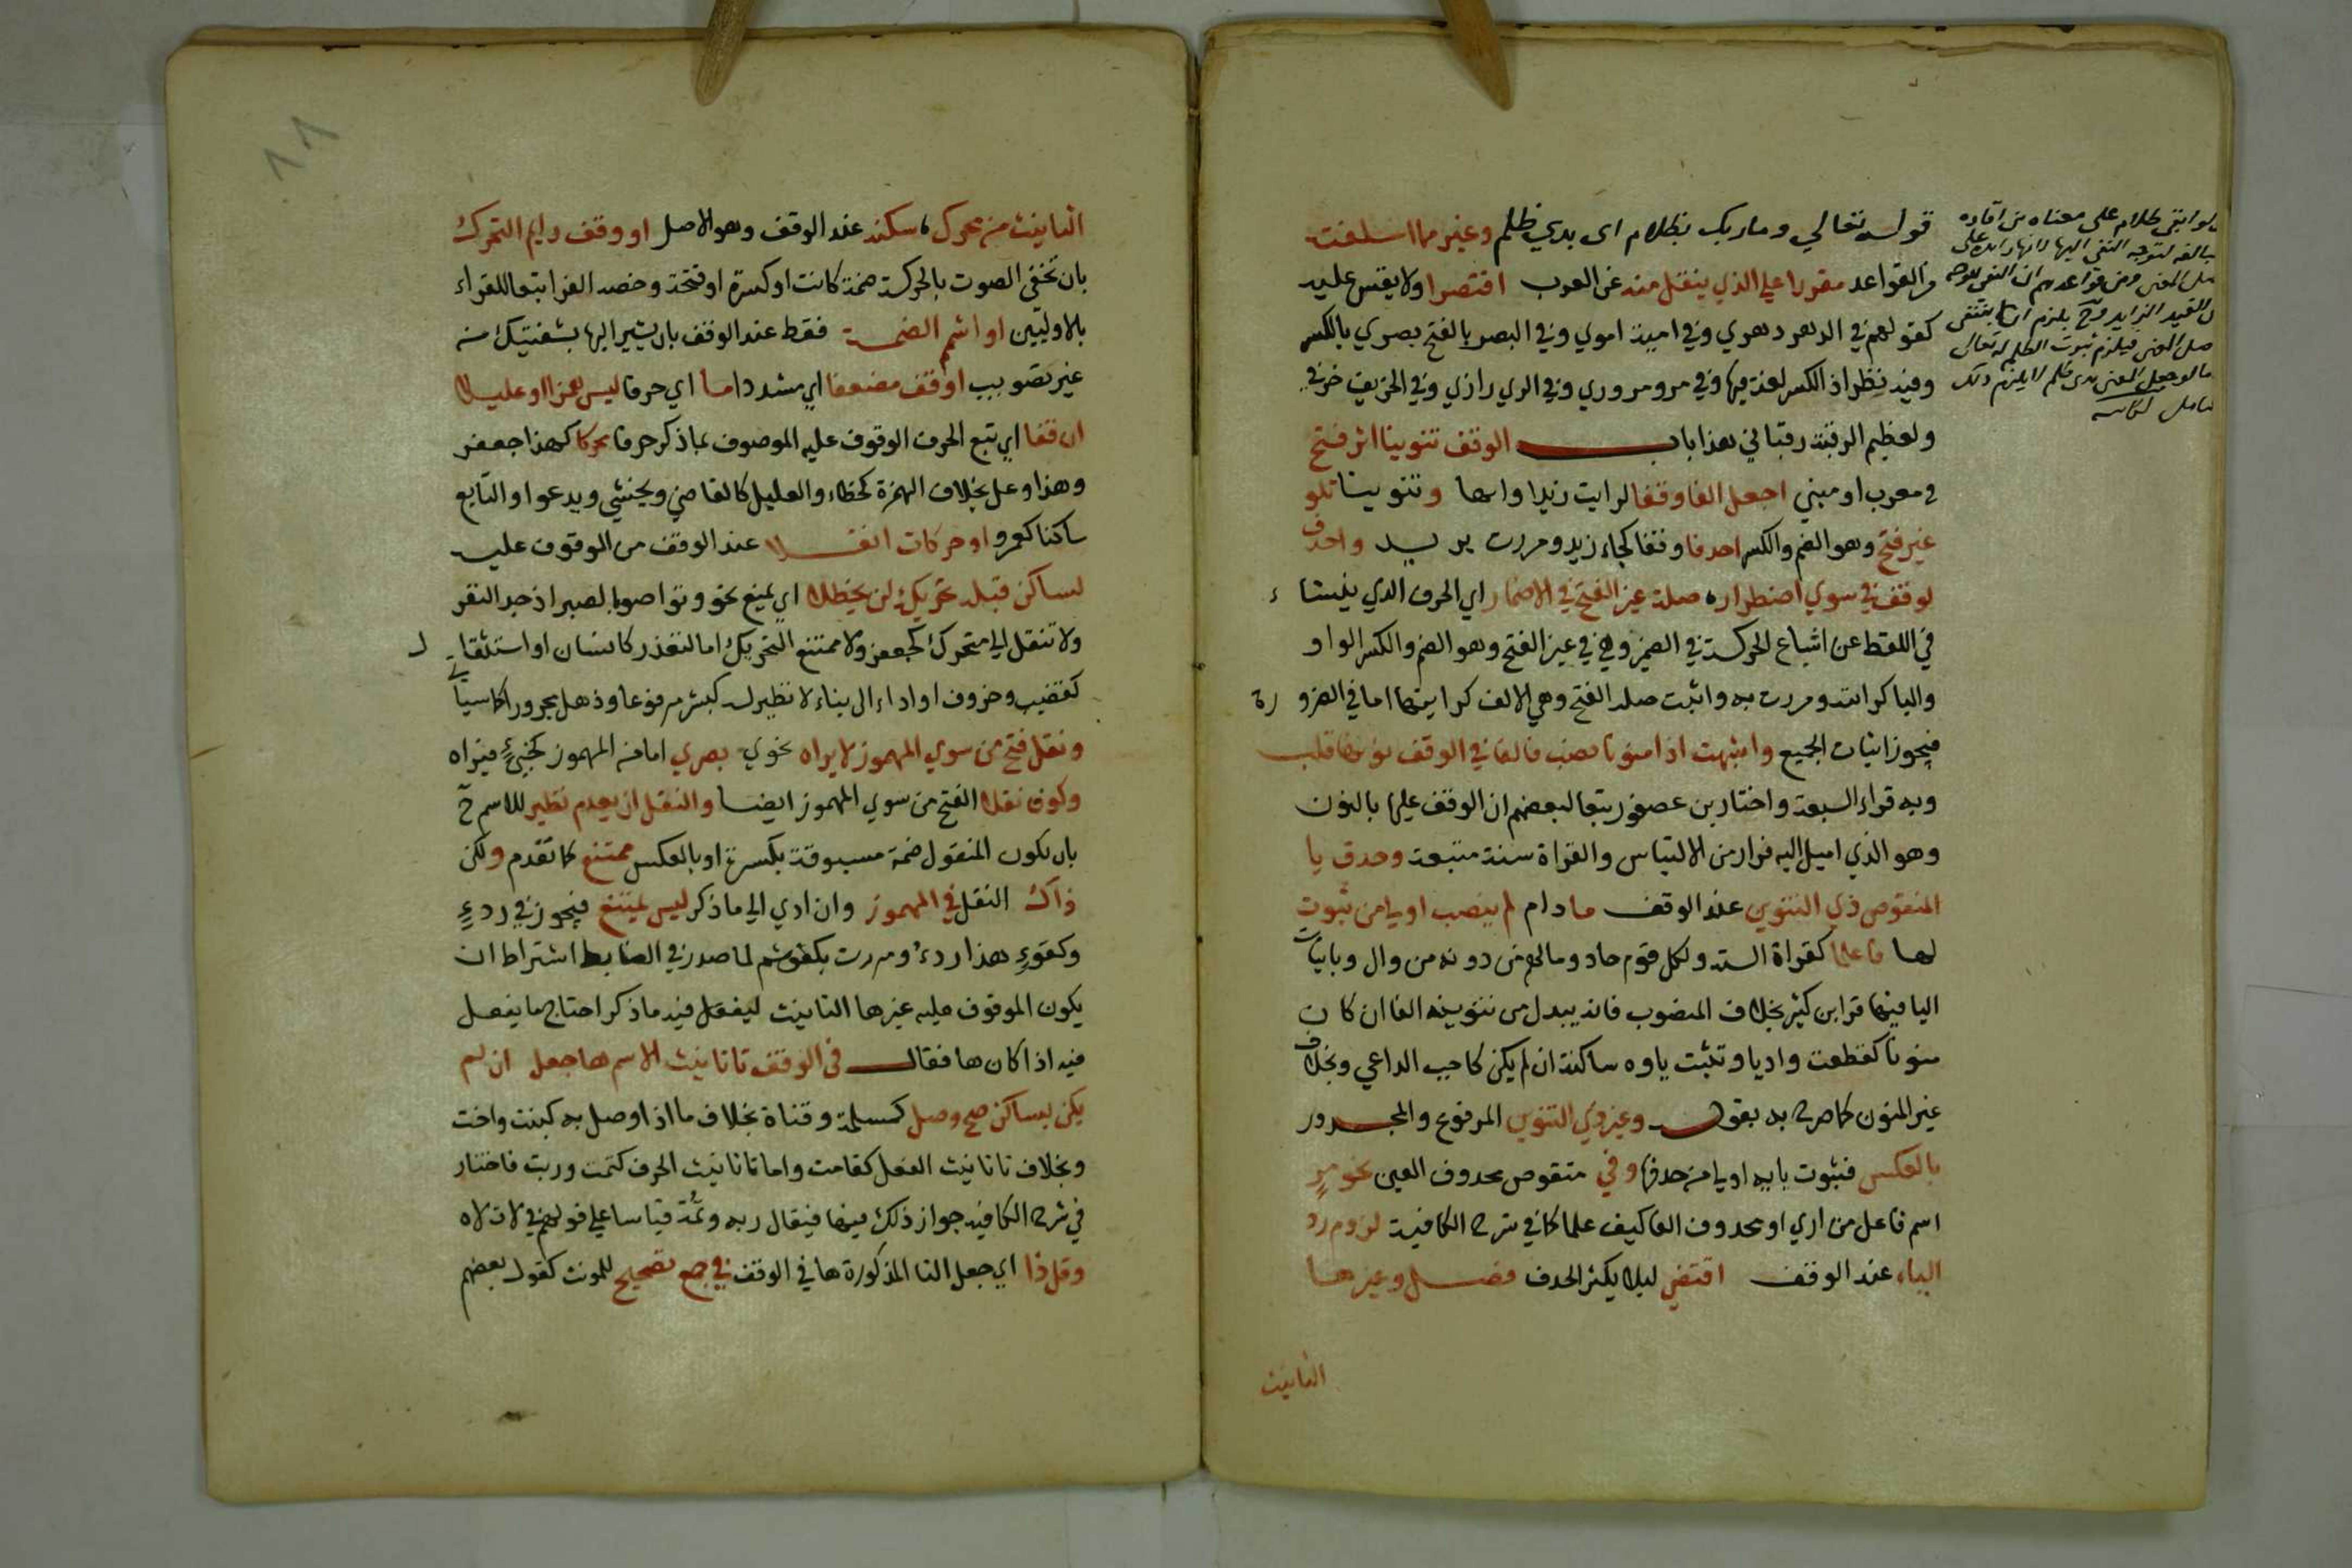 قوله تعالي وما ربك بظلام اى بذي ظلم وغير ما اسلفت
من القواعد مقررا علي الذي ينقل منه عن العرب اقتصرا ولا يقس عليه
كقولهم في الدهر دهري وفي امية اموي وفي البصر بالفتح بصري بالكسر
وفيه نظر اذ الكسر لغة فيها وفي مرو مروزي وفي الري رازي وفي الخريف خرفي
ولعظيم الرقبة رقباني هذا باب الوقف تنوينا اثر فتح
في معرب او مبني اجعل الفا وقفا لرايت زيدا وايها وتنوينا تلو
غير فتح وهو الضم والكسر احذفا وقفا كجاء زيد ومررت بزيد واحذف
لوقف في سوي اضطرار صلة غير الفتح في الاضمار اي الحرف الذي ينشاء
في اللفظ عن اشباع الحركة في الضمير وهي في غير الفتح وهو الضم والكسر الواو
واليا كرايته ومررت به واثبت صلة الفتح وهي الالف كرايتها اما في الضرورة
فيجوز اثبات الجميع واشبهت اذا منونا نصب فالفا في الوقف نونها قلب
وبه قراء السبعة واختار بن عصفور تبعا لبعضهم ان الوقف عليها بالنون
وهو الذي اميل اليه فرار من الالتباس والقراة سنة متبعة وحذف يا
المنقوص ذي التنوين عند الوقف ما دام لم ينصب اولي من ثبوت
لها فاعلما كقراة الستة ولكل قوم هاد وما لهم من دونه من وال وباثبات
اليا فيهما قرا ابن كثير بخلاف المنصوب فانه يبدل من تنوينه الفا ان كان
منونا كقطعت واديا وتثبت ياوه ساكنة ان لم يكن كاجب الداعي وبخلاف
غير المنون كما صرح به بقوله وغير ذي التنوين المرفوع والمجرور
بالعكس فثبوت يايه اولي من حذفها وفي منقوص محذوف العين نحو مر
اسم فاعل من اري او محذوف الفا كيف علما كما في شرح الكافية لزوم رد
الياء عند الوقف اقتفي ليلا يكثر الحذف فصل وغير ها
التانيث
التانيث من محرك سكنه عند الوقف وهو الاصل او وقف رايم التحرك
بان تخفي الصوت بالحركة ضمة كانت او كسرة او فتحة وخصه الفرا تبعا للقراء
بالاوليين او اشمم الضمة فقط عند الوقف بان يشير اليها بشفتيك من
غير تصويب او قف مضعفا اي مشددا ما اي حرفا ليس همزا او عليلا
ان قفا اي تبع الحرف الوقوف عليه الموصوف بما ذكر حرفا محركا كهذا جعفر
وهذا وعل بخلاف الهمزة كخطاء والعليل كالقاضي ويخشي ويدعوا والتابع
ساكنا كعمرو او حركات انقلا عند الوقف من الموقوف عليه
لساكن قبله تحريكه لن يحظلا اي يمنع نحو وتواصوا بالصبر اذ جد النقر
ولا تنقل الي متحرك كجعفر ولا ممتنع التحريك اما لتعذر كانسان او استثقال
كقضيب وخروف او اداء الى بناء لا نظير له كبشر مرفوعا وذهل مجرورا كما سياتي
ونقل فتح من سوي المهموز لا يراه نحوي بصري اما من المهموز كخبئ فيراه
وكوف نقلا الفتح من سوي المهموز ايضا والنقل ان يعدم نظير للاسم ح
بان يكون المنقول ضمة مسبوقة بكسرة او بالعكس ممتنع كما تقدم ولكن
ذاك النقل في المهموز وان ادي الي ما ذكر ليس يمتنع فيجوز في ردء
وكفوء هذا ردء ومررت بكفوء ثم لما صدر في الضابط اشتراط ان
يكون الموقوف عليه غير ها التانيث ليفعل فيه ما ذكر احتاج ما يفعل
فيه اذا كان ها فقال في الوقف تا تانيث الاسم ها جعل ان لم
يكن بساكن صح وصل كمسلمة وقناة بخلاف ما اذا وصل به كبنت واخت
وبخلاف تا تانيث الفعل كقامت واما تا تانيث الحرف كثمت وربت فاختار
في شرح الكافية جواز ذلك فيهما فيقال ربه وثمه قياسا علي قولهم في لات لاه
وقل ذا اي جعل التا المذكورة ها في الوقف في جمع تصحيح للمونث كقول بعضهم